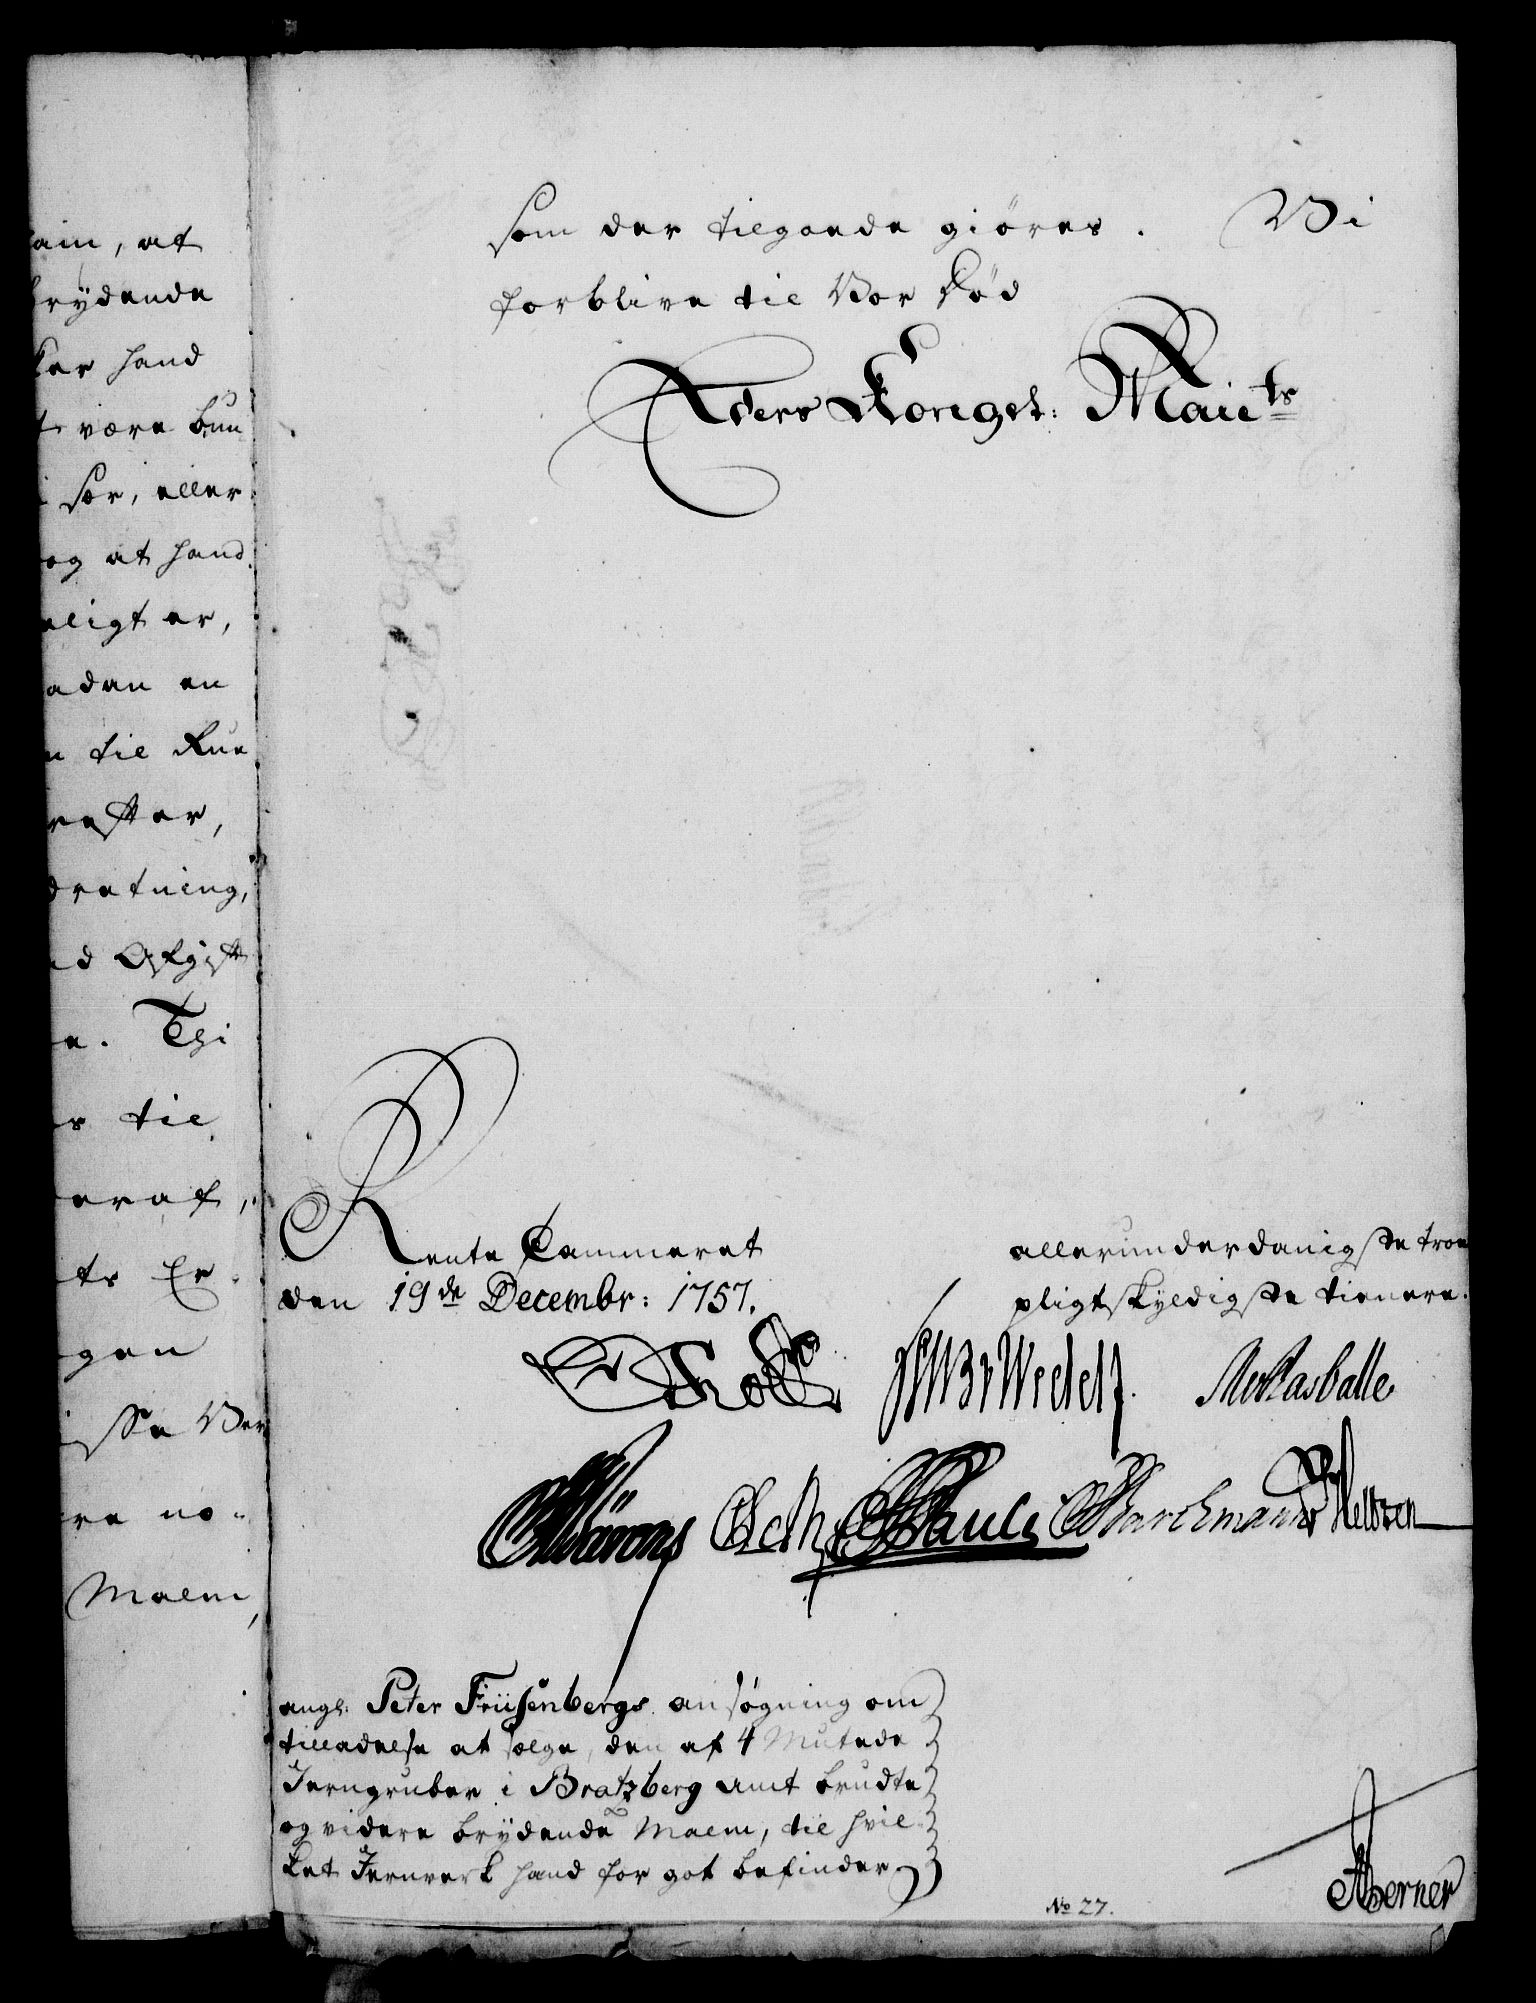 ain, at
brydende
ker hand
t være bun
i sær, eller
og at hand
eligt er,
adan en
n til Rue
refter,
dretning,
ed Afgift
e. Thi
s til
eraf,
ts Er-
gen
isse Ver
re no-
Malm,
som der tilgavde giøres. Vi
forblive til Vor død
Eders Kongel: Maitts
Rente Cammeret
den 19de Decembr: 1757.
allerunderdanigste troe
pligtskyldigste tienere.
Holst Wedell
Barchmann Heltzen
ang: Peter Friisenbergs ansøgning om
tilladelse at sælge, den af 4 Mutede
Jerngruber i Bratzberg Amt brudte
og videre brydende Malm, til hvil-
ket Jernverk hand for got befinder
No 27.
Berner